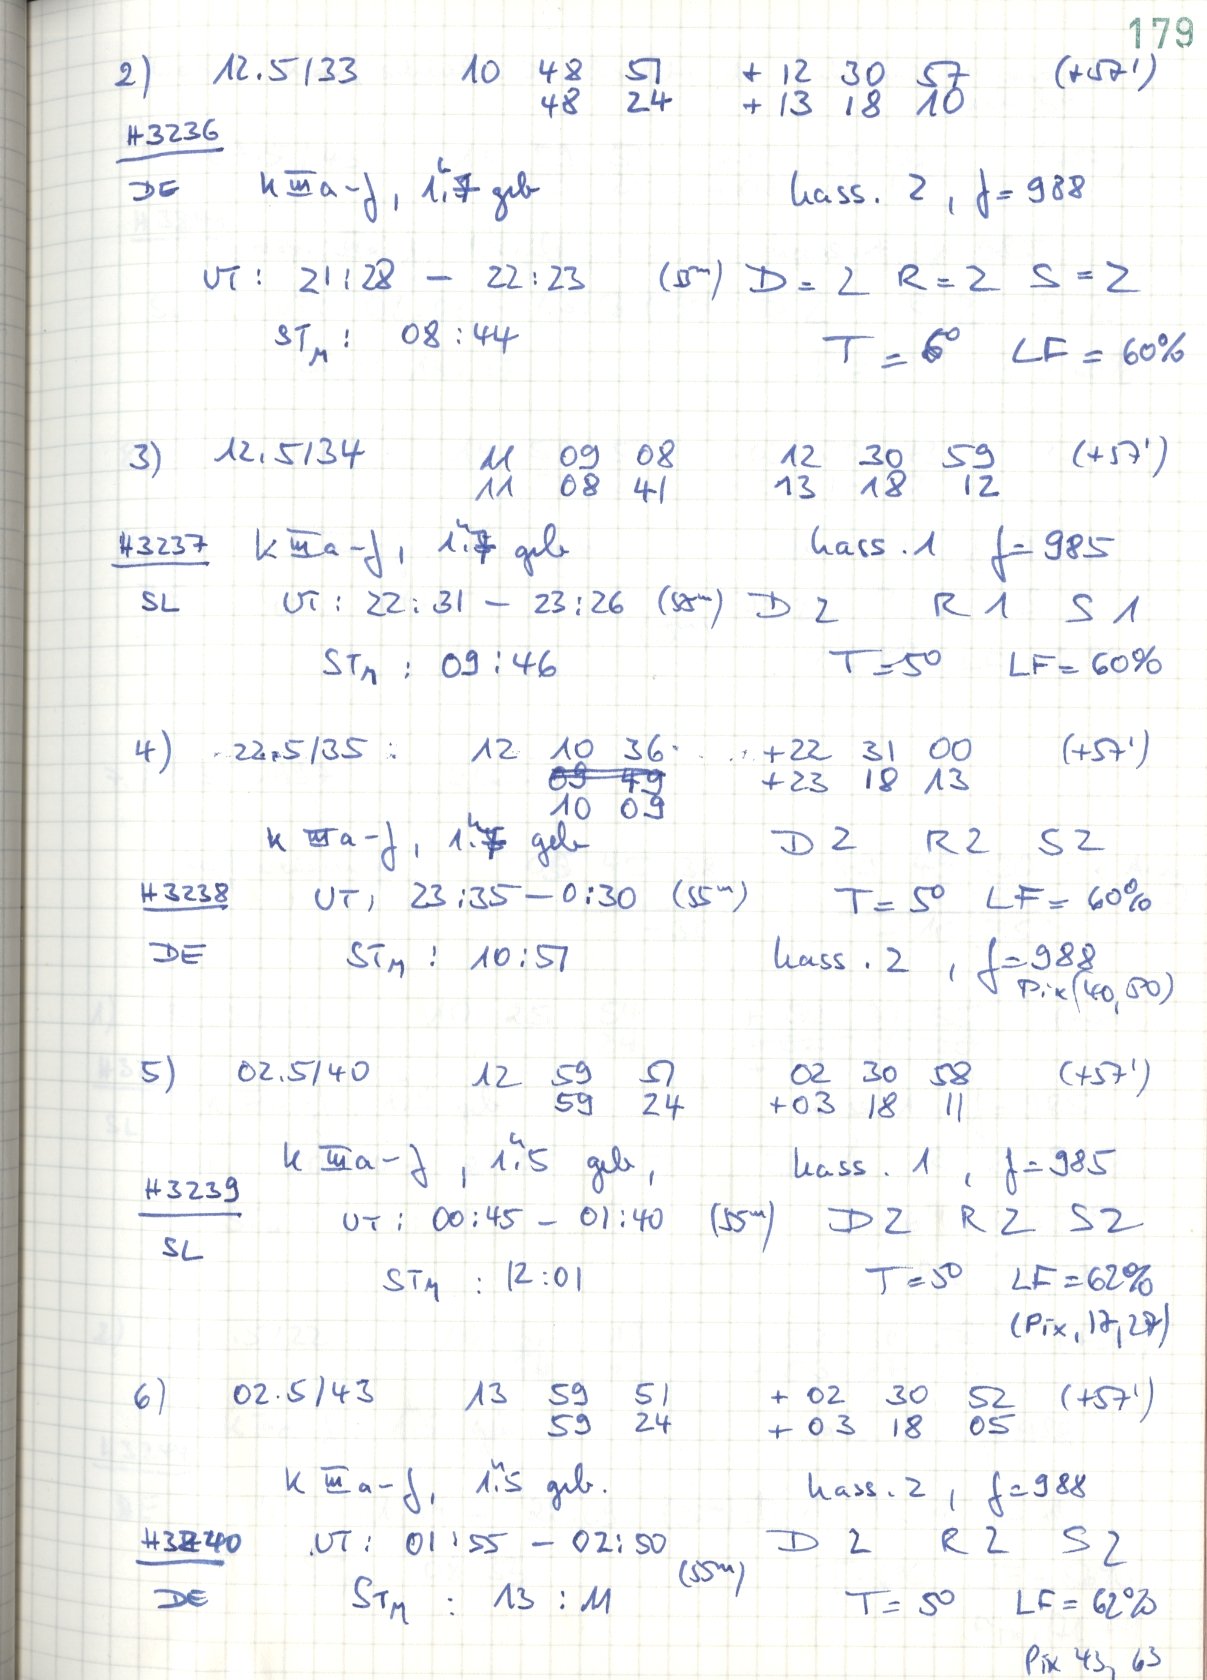 179
2) 12.5/33 10 48 51 + 12 30 57 (+57')
48 24 + 13 18 10
H3236
DE k III a-f, 1.7 geb Kass. 2, f=988
UT: 21:28 - 22:23 (55m) D=2 R=2 S=2
STM: 08:44 T=6° LF=60%
3) 12.5/34 11 09 08 12 30 59 (+57')
11 08 41 13 18 12
H3237 k III a-f, 1.7 geb Kass. 1 f=985
SL UT: 22:31 - 23:26 (55m) D 2 R 1 S 1
STM: 09:46 T=5° LF=60%
4) 22.5/35: 12 10 36 +22 31 00 (+57')
09 49 +23 18 13
10 09
k III a-f, 1.7 geb D 2 R 2 S 2
H3238 UT: 23:35 - 0:30 (55m) T=5° LF=60%
DE STM: 10:51 Kass. 2, f=988
Pix(40,50)
5) 02.5/40 12 59 51 02 30 58 (+57')
59 24 +03 18 11
k III a-f, 1h.5 geb, Kass. 1, f=985
H3239
UT: 00:45 - 01:40 (55m) D 2 R 2 S 2
SL
STM: 12:01 T=5° LF=62%
(Pix, 17,27)
6) 02.5/43 13 59 51 + 02 30 52 (+57')
59 24 + 03 18 05
k III a-f, 1h.5 geb. Kass. 2, f=988
H3240 UT: 01:55 - 02:50 D 2 R 2 S 2
(55m)
DE STM: 13:11 T=5° LF=62%
Pix 43, 63